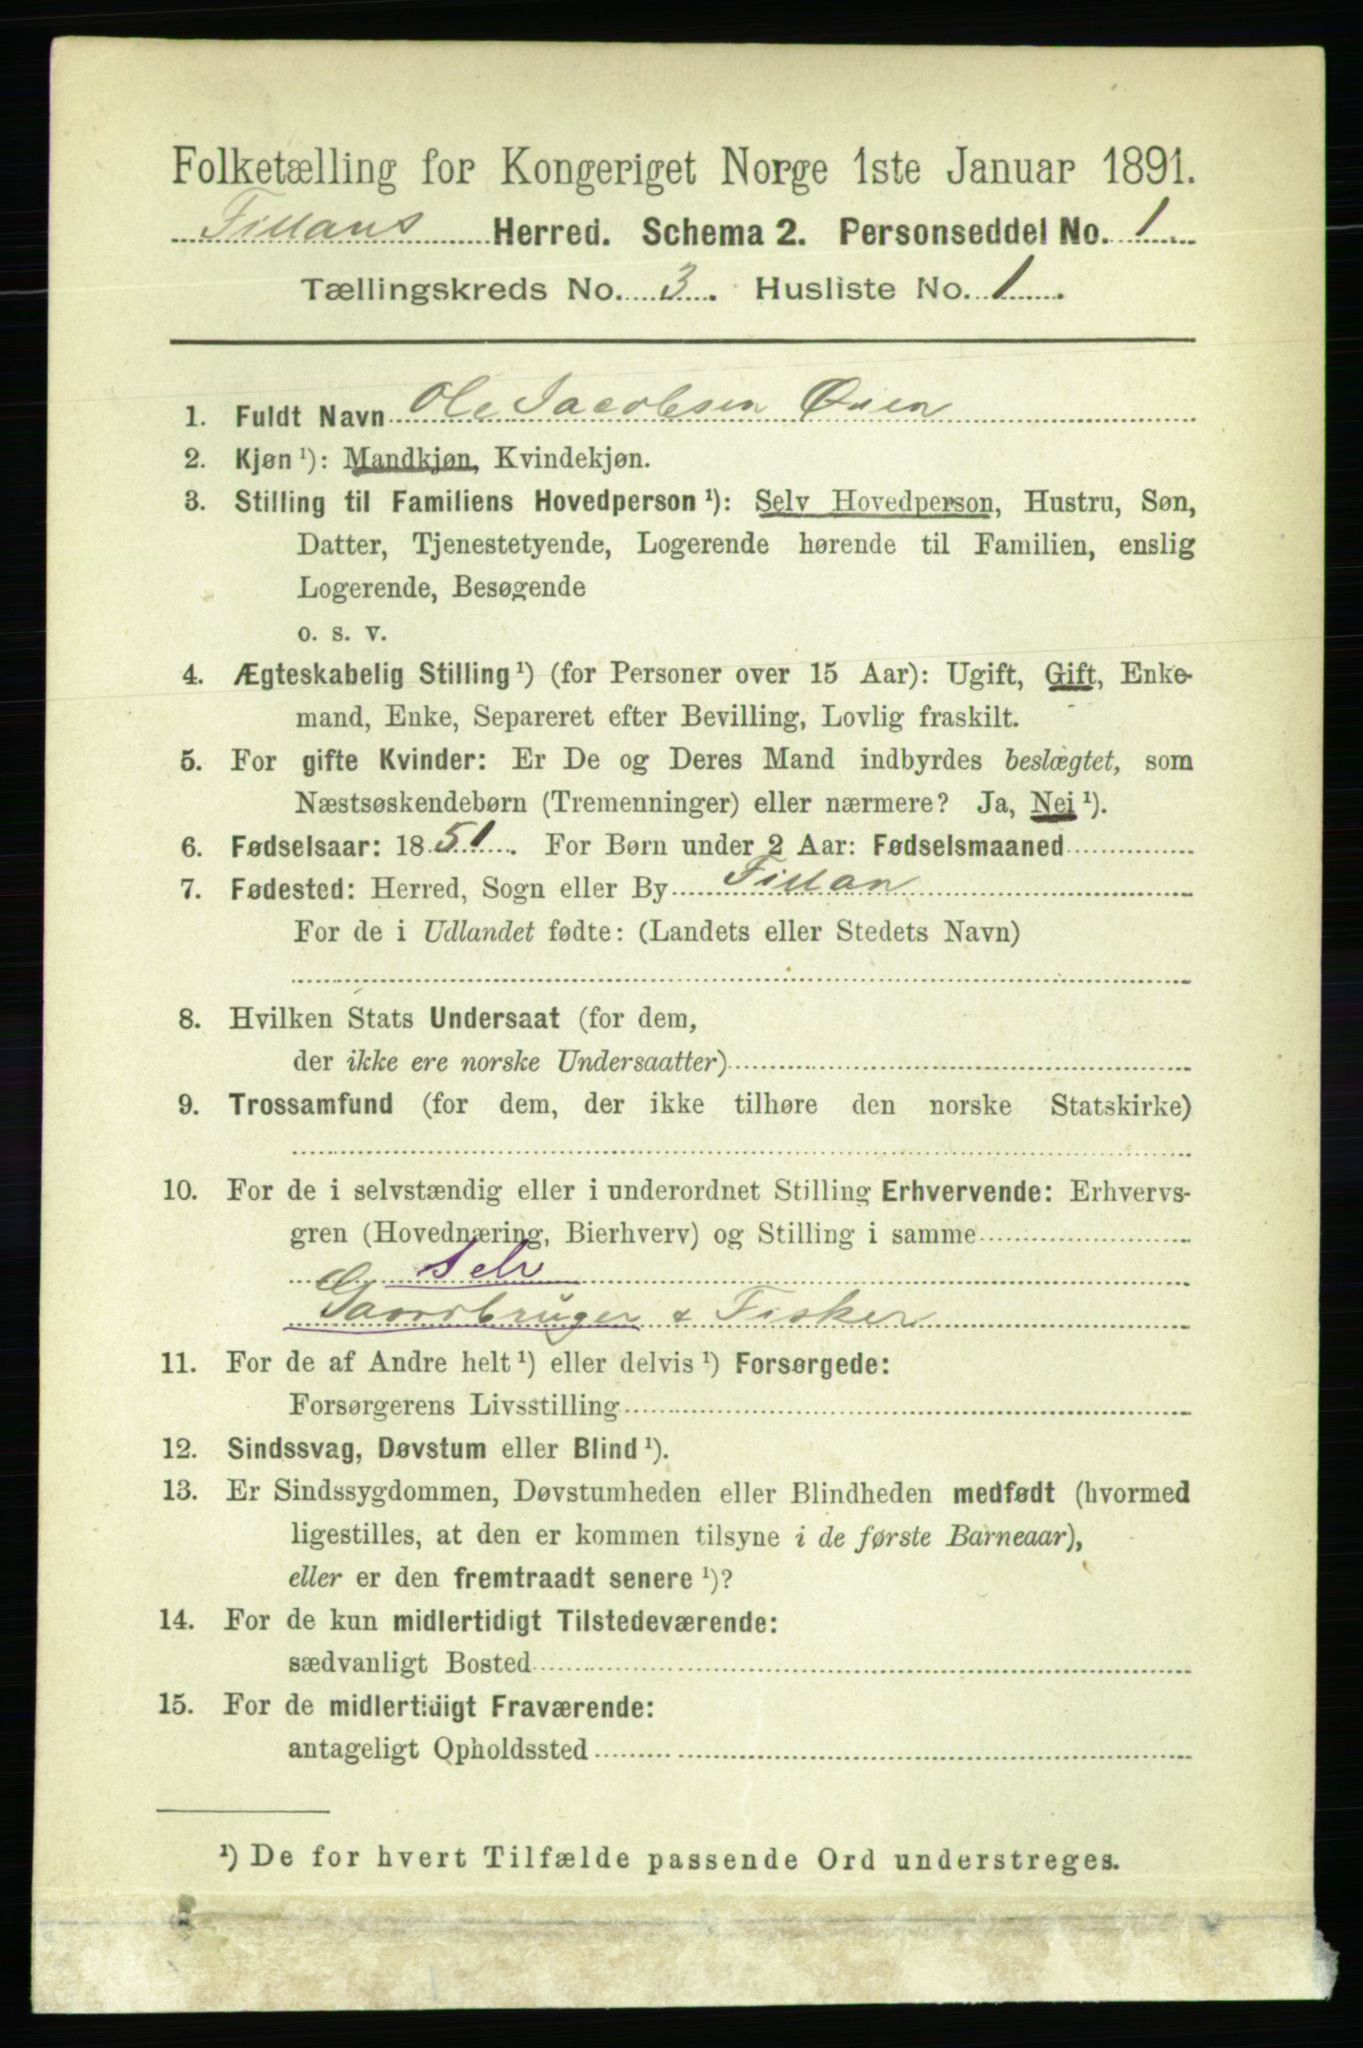 Folketælling for Kongeriget Norge 1ste Januar 1891.
Fillans Herred. Schema 2. Personseddel No. 1
Tællingskreds No. 3. Husliste No. 1
1. Fuldt Navn Ole Jacobsen Øien
2. Kjøn ¹): Mandkjøn, Kvindekjøn.
3. Stilling til Familiens Hovedperson ¹): Selv Hovedperson, Hustru, Søn,
Datter, Tjenestetyende, Logerende hørende til Familien, enslig
Logerende, Besøgende
o. s. v.
4. Ægteskabelig Stilling ¹) (for Personer over 15 Aar): Ugift, Gift, Enke-
mand, Enke, Separeret efter Bevilling, Lovlig fraskilt.
5. For gifte Kvinder: Er De og Deres Mand indbyrdes beslægtet, som
Næstsøskendebørn (Tremenninger) eller nærmere? Ja, Nei ¹).
6. Fødselsaar: 1851. For Børn under 2 Aar: Fødselsmaaned
7. Fødested: Herred, Sogn eller By Fillan
For de i Udlandet fødte: (Landets eller Stedets Navn)
8. Hvilken Stats Undersaat (for dem,
der ikke ere norske Undersaatter)
9. Trossamfund (for dem, der ikke tilhøre den norske Statskirke)
10. For de i selvstændig eller i underordnet Stilling Erhvervende: Erhvervs-
gren (Hovednæring, Bierhverv) og Stilling i samme
Selv
Gaardbruger & Fisker
11. For de af Andre helt ¹) eller delvis ¹) Forsørgede:
Forsørgerens Livsstilling
12. Sindssvag, Døvstum eller Blind ¹).
13. Er Sindssygdommen, Døvstumheden eller Blindheden medfødt (hvormed
ligestilles, at den er kommen tilsyne i de første Barneaar),
eller er den fremtraadt senere ¹)?
14. For de kun midlertidigt Tilstedeværende:
sædvanligt Bosted
15. For de midlertidigt Fraværende:
antageligt Opholdssted
¹) De for hvert Tilfælde passende Ord understreges.